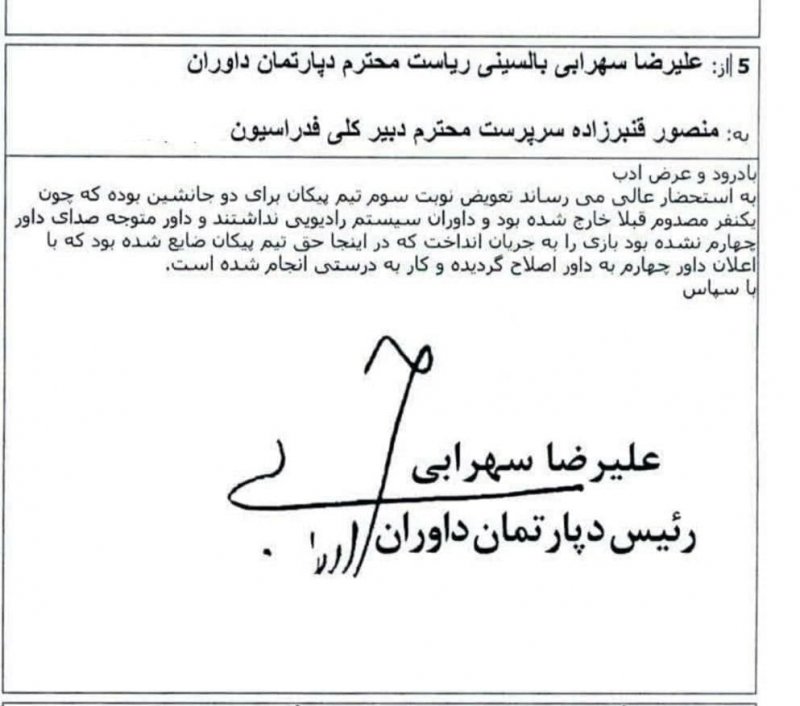 5 از: علیرضا سهرابی بالسینی ریاست محترم دپارتمان داوران
به: منصور قنبرزاده سرپرست محترم دبیر کلی فدراسیون
بادرود و عرض ادب
به استحضار عالی می رساند تعویض نوبت سوم تیم پیکان برای دو جانشین بوده که چون
یکنفر مصدوم قبلا خارج شده بود و داوران سیستم رادیویی نداشتند و داور متوجه صدای داور
چهارم نشده بود بازی را به جریان انداخت که در اینجا حق تیم پیکان ضایع شده بود که با
اعلان داور چهارم به داور اصلاح گردیده و کار به درستی انجام شده است.
با سپاس
علیرضا سهرابی
رئیس دپارتمان داوران